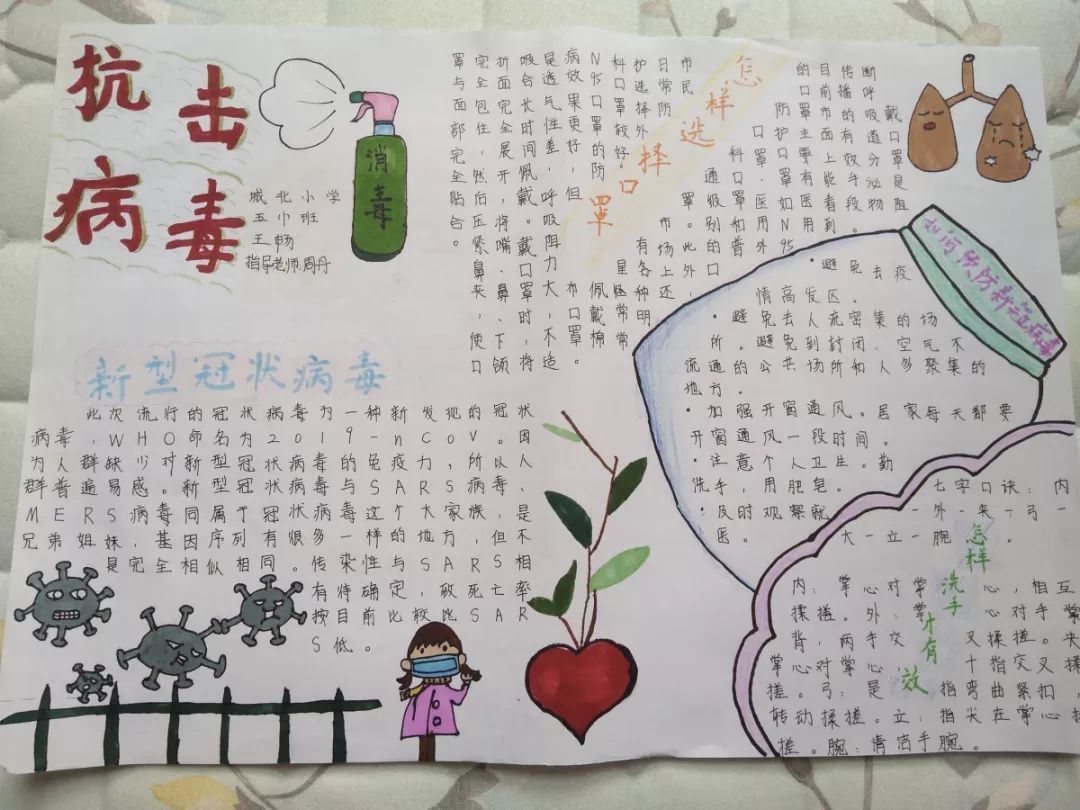 抗击
病毒
城北小学
五巾班
王畅
指导老师:周丹
消毒
新型冠状病毒
此次流行的冠状病毒为一种新发现的冠状
病毒,WHO命名为2019-nCoV。因
为人群缺少对新型冠状病毒的免疫力,所以人
群普遍易感。新型冠状病毒与SARS病毒、
MERS病毒同属于冠状病毒这个大家族,是
兄弟姐妹,基因序列有很多一样的地方,但不
是完全相似相同。传染性与SARS相
有待确定,致死亡率
按目前比较比SAR
S低。
怎样选择口罩
戴口罩是阻
断呼吸道分泌物
传播的有效手段。
目前市面上能看到
的口罩主要有医用
防护口罩如N95
口罩、医用外
科口罩和普
通级别的口
罩。此外,
市场上还
有各种明
星经常常
佩戴棉
布口罩。
市民
日常防
护选择外
科口罩较好。
N95口罩的防
病效果更好,但
是透气性差,呼吸阻力大,不适
吸合长时间佩戴。戴口罩时,将
折面完全展开,将嘴、鼻、下颌
完全包住,然后压紧鼻夹,使口
罩与面部完全贴合。
如何预防新冠病毒
·避免去疫
情高发区。
·避免去人流密集的场
所。避免到封闭、空气不
流通的公共场所和人多聚集的
地方。
·加强开窗通风。居家每天都要
开窗通风一段时间。
·注意个人卫生。勤
洗手,用肥皂。
·及时观察就
医。
怎样洗手才有效
七字口诀:内
一外一夹一弓一
大一立一腕
内:掌心对掌心,相互
揉搓。外:掌心对手掌
背,两手交叉揉搓。夹
掌心对掌心十指交叉揉
搓。弓:是指弯曲紧扣,
转动揉搓。立:指尖在掌心揉
搓。腕:清洁手腕。